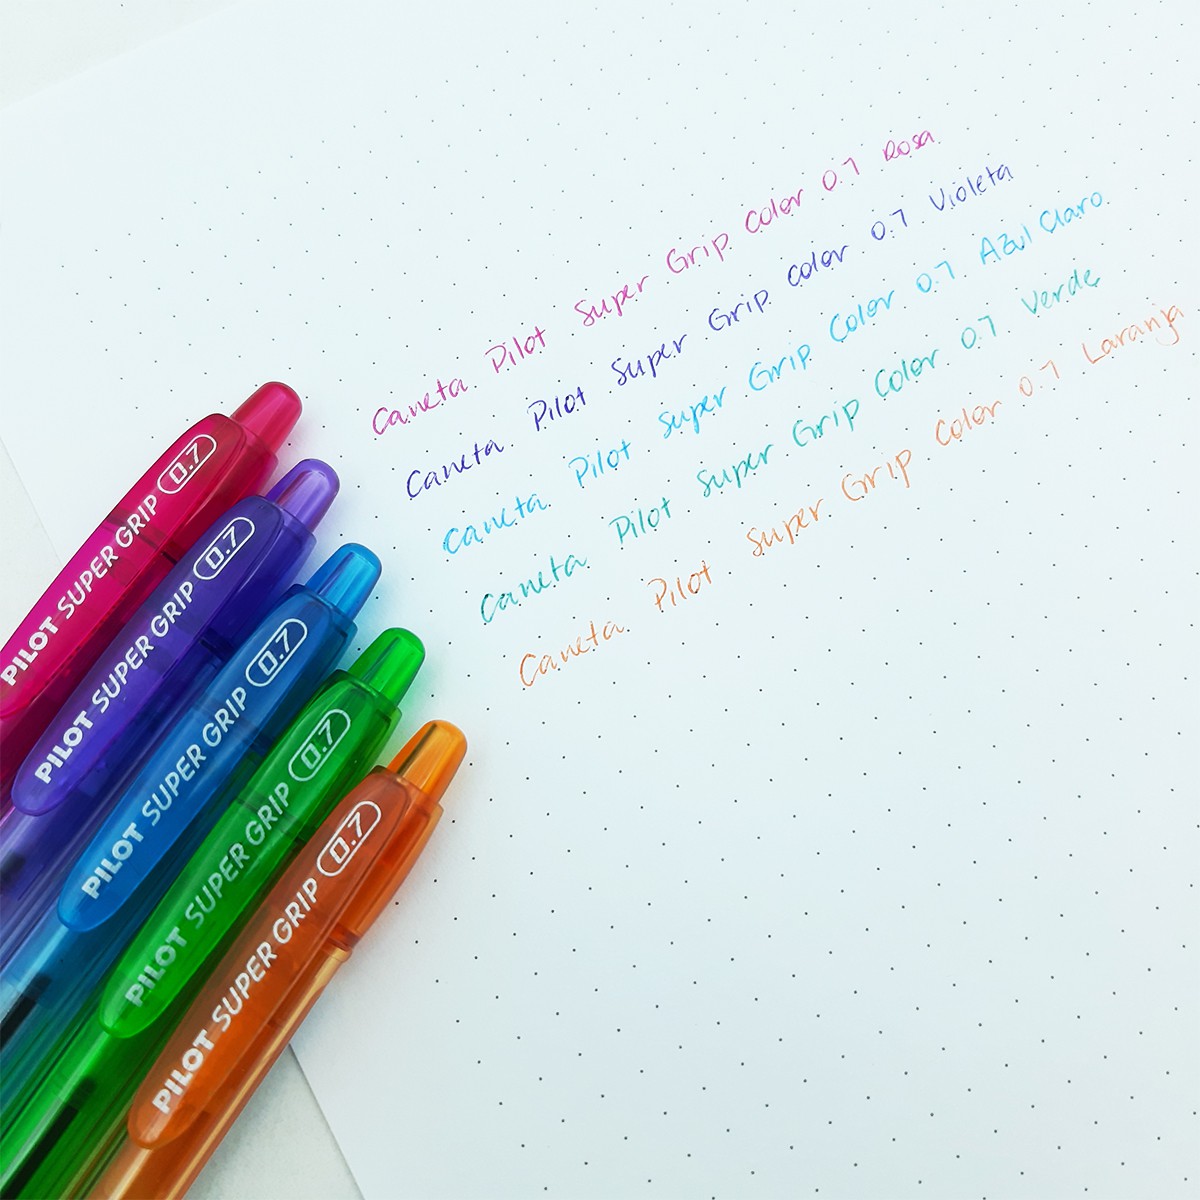 Caneta Pilot Super Grip Color 0.7 Rosa
Caneta Pilot Super Grip Color 0.7 Violeta
Caneta Pilot Super Grip Color 0.7 Azul Claro
Caneta Pilot Super Grip Color 0.7 Verde
Caneta Pilot Super Grip Color 0.7 Laranja
PILOT SUPER GRIP 0.7
PILOT SUPER GRIP 0.7
PILOT SUPER GRIP 0.7
PILOT SUPER GRIP 0.7
PILOT SUPER GRIP 0.7